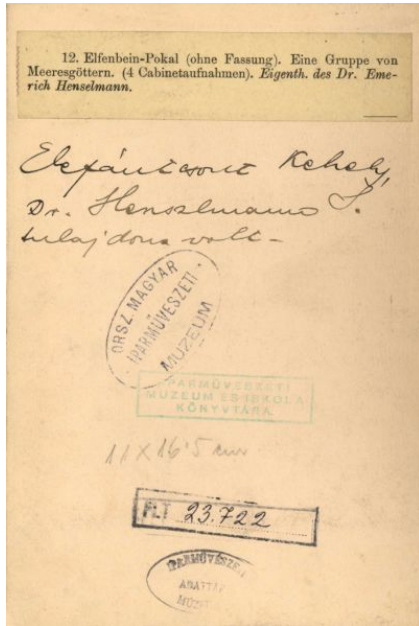 12. Elfenbein-Pokal (ohne Fassung). Eine Gruppe von
Meeresgöttern. (4 Cabinetaufnahmen). Eigenth. des Dr. Eme-
rich Henselmann.
Elefántcsont Kehely,
Dr. Henszlmann I.
tulajdona volt -
ORSZ. MAGYAR
IPARMŰVÉSZETI
MUZEUM
IPARMŰVÉSZETI
MUZEUM ÉS ISKOLA
KÖNYVTÁRA
11X16'5 cm
FLT 23.722
IPARMŰVÉSZETI
ADATTÁR